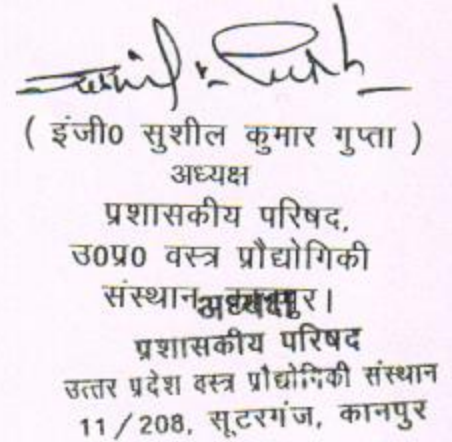 ( इंजी0 सुशील कुमार गुप्ता )
अध्यक्ष
प्रशासकीय परिषद,
उ0प्र0 वस्त्र प्रौद्योगिकी
संस्थान, कानपुर।
अध्यक्ष
प्रशासकीय परिषद
उत्तर प्रदेश वस्त्र प्रौद्योगिकी संस्थान
11/208, सूटरगंज, कानपुर